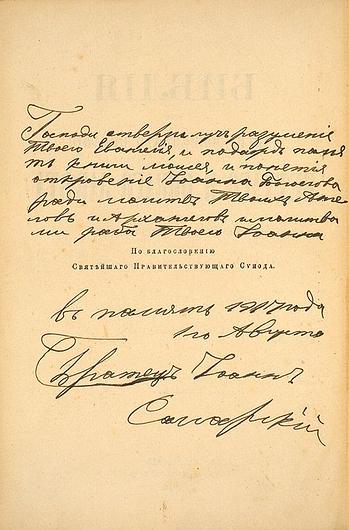 Господи отверзи лучъ разуменія
Твоего Евангелія, и подаждь паня
ть книги моисея, и понятія
откровеніе Іоанна Богослова
ради молитвъ Твоихъ Анге
ловъ и Архангеловъ и молитва
ми раба Твоего Іоанна
По благословенію
Святѣйшаго Правительствующаго Сѵнода.
въ память 1907 года
1го Августа
Братецъ Іоаннъ
Самарскій